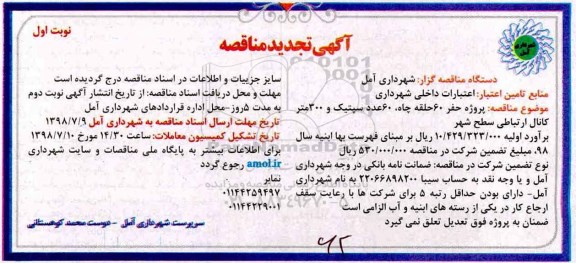 نوبت اول
آگهی تجدید مناقصه
دستگاه مناقصه گزار: شهرداری آمل
منابع تامین اعتبار: اعتبارات داخلی شهرداری
موضوع مناقصه: پروژه حفر ۶۰حلقه چاه، ۶۰عدد سپتیک و ۳۰۰متر
کانال ارتباطی سطح شهر
برآورد اولیه ۱۰/۴۲۹/۳۲۳/۰۰۰ ریال بر مبنای فهرست بها ابنیه سال
۹۸، مبلغ تضمین شرکت در مناقصه: ۵۳۰/۰۰۰/۰۰۰ ریال
نوع تضمین شرکت در مناقصه: ضمانت نامه بانکی در وجه شهرداری
آمل و یا وجه نقد به حساب سیبا ۲۲۰۶۶۸۹۸۲۰۰ به نام شهرداری
آمل- دارای بودن حداقل رتبه ۵ برای شرکت ها با رعایت سقف
ارجاع کار در یکی از رسته های ابنیه و آب الزامی است
ضمنان به پروژه فوق تعدیل تعلق نمی گیرد
سایر جزییات و اطلاعات در اسناد مناقصه درج گردیده است
مهلت و محل دریافت اسناد مناقصه: از تاریخ انتشار آگهی نوبت دوم
به مدت ۵روز-محل اداره قراردادهای شهرداری آمل
تاریخ مهلت ارسال اسناد مناقصه به شهرداری آمل ۱۳۹۸/۷/۹
تاریخ تشکیل کمیسیون معاملات: ساعت ۱۴/۳۰ مورخ ۱۳۹۸/۷/۱۰
برای اطلاعات بیشتر به پایگاه ملی مناقصات و سایت شهرداری
amol.ir رجوع گردد
نمابر
۰۱۱۴۴۲۵۹۴۹۷
۰۱۱۴۴۲۲۹۰۰۱
سرپرست شهرداری آمل - دوست محمد کوهستانی